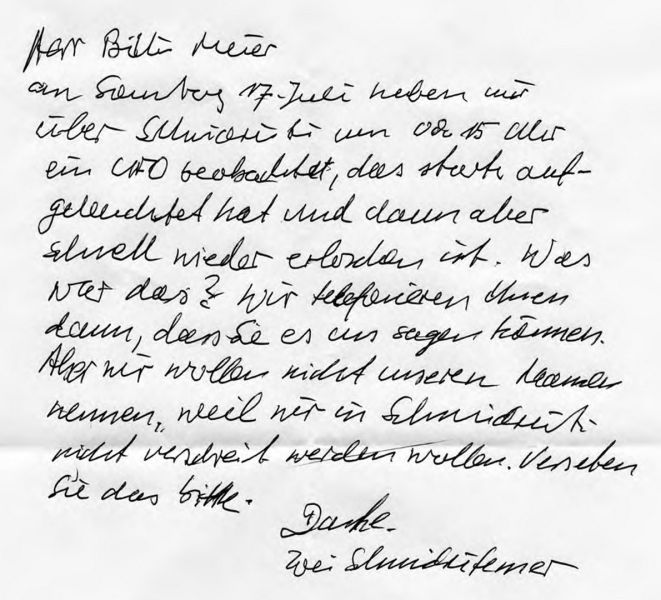 Herr Billi Meier
am Samstag 17. Juli haben wir
über Schmidrüti um 00:15 Uhr
ein UFO beobachtet, das stark auf-
geleuchtet hat und dann aber
schnell wieder erloschen ist. Was
war das? Wir telefonieren Ihnen
dann, dass Sie es uns sagen können.
Aber wir wollen nicht unseren Namen
nennen, weil wir in Schmidrüti
nicht verschreit werden wollen. Verzeihen
Sie das bitte.
Danke.
Zwei Schmidrütemer